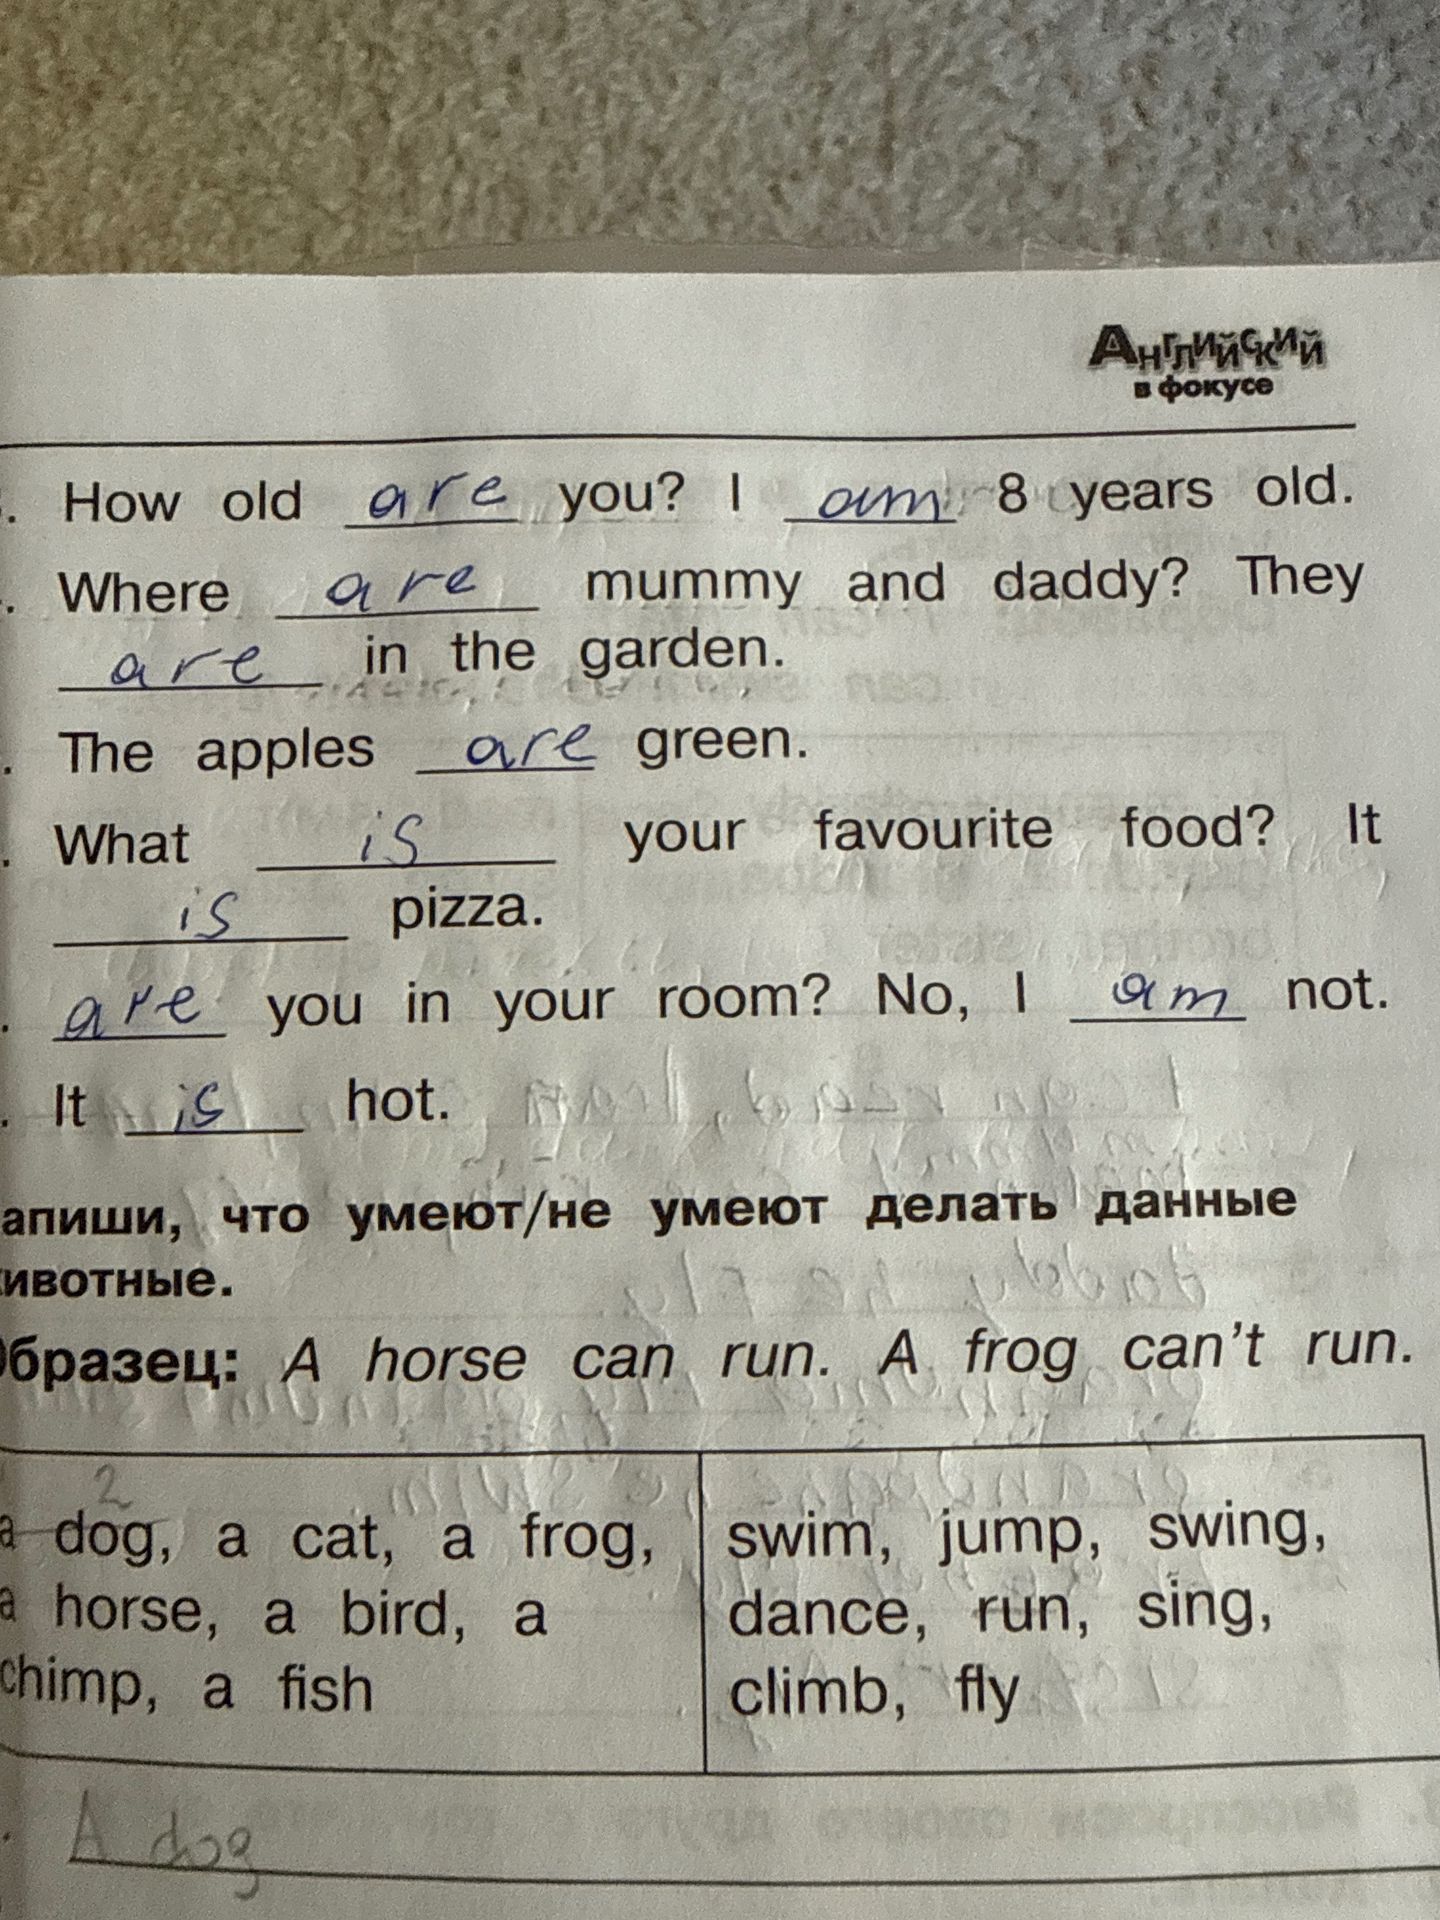 Английский
в фокусе
. How old are you? I am 8 years old.
. Where are mummy and daddy? They
are in the garden.
. The apples are green.
. What is your favourite food? It
is pizza.
. are you in your room? No, I am not.
. It is hot.
апиши, что умеют/не умеют делать данные
ивотные.
бразец: A horse can run. A frog can't run.
2
a dog, a cat, a frog,
a horse, a bird, a
chimp, a fish
swim, jump, swing,
dance, run, sing,
climb, fly
. A dog